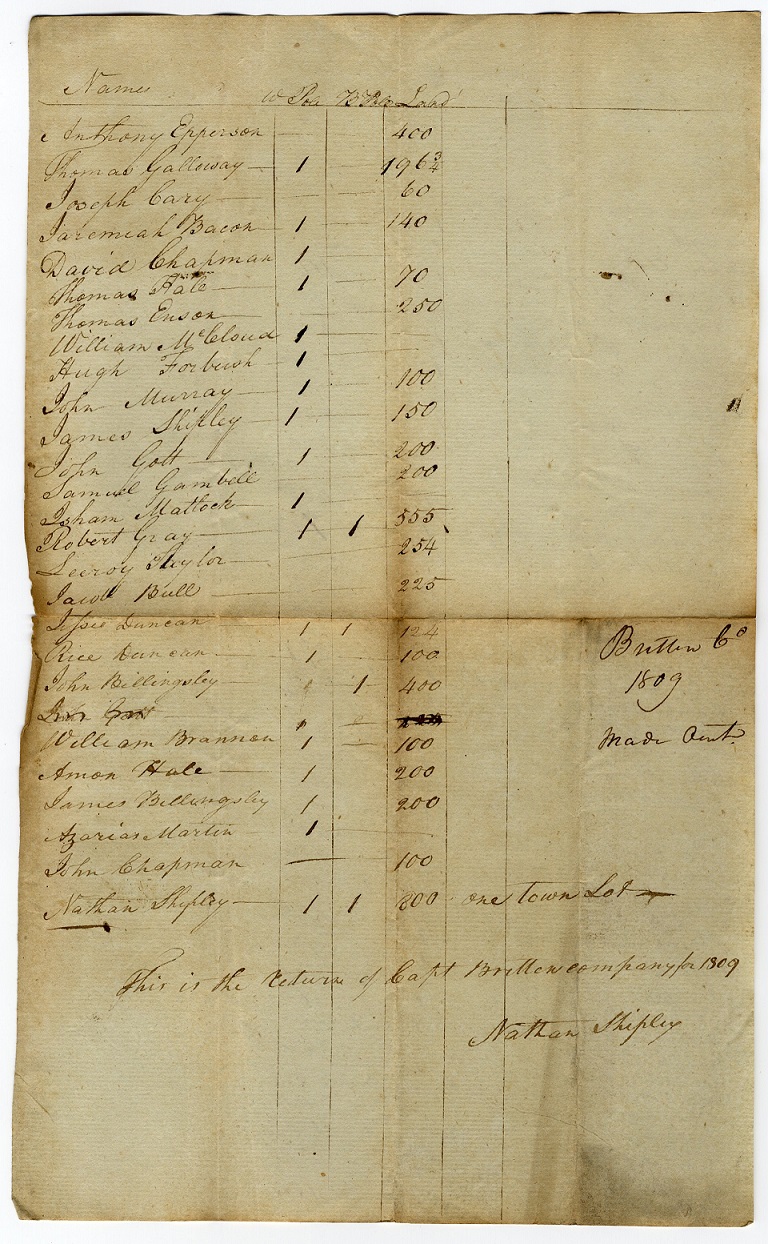 Names W Poll B Polls Land
Anthony Epperson — — 400
Thomas Galloway — 1 — 196 3/4
Joseph Cary — — — 60
Jaremiah Bacon — 1 — 140
David Chapman 1 —
Thomas Hale — 1 — 70
Thomas Enson — — — 250
William McCloud 1 — —
Hugh Forbush 1 —
John Murray — 1 — 100
James Shipley — 1 — 150
John Gott — 1 — 200
Samuel Gambell 200
Isham Matlock — 1 —
Robert Gray — 1 1 555
Leeroy Taylor — — 254
Jacob Bull — — 225
Jesse Duncan 1 1 124
Rice Duncan — 1 — 100
John Billingsly — 1 1 400
1
William Brannon 1 — 100
Amon Hale — 1 200
James Billingsly 1 200
Azarias Martin 1 —
John Chapman — 100
Nathan Shipley — 1 1 800 - one town Lot —
This is the Return of Capt Britten company for 1809
Nathan Shipley
Britten Co
1809
Made Out.